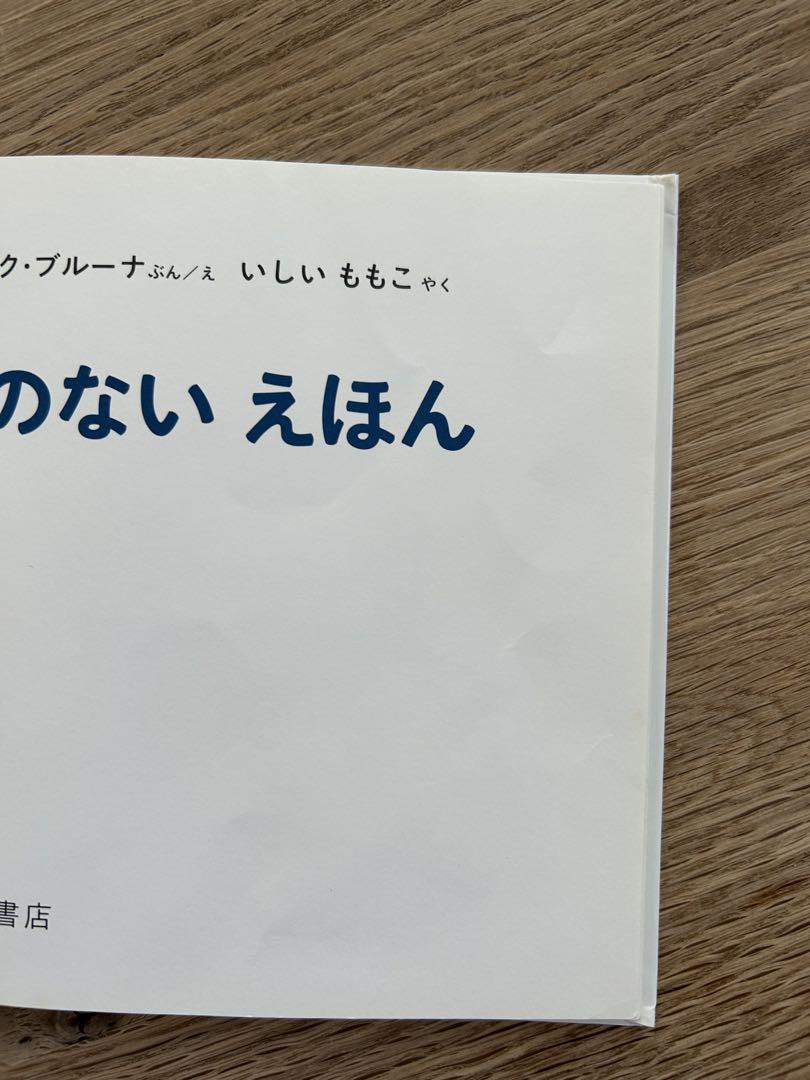 ク・ブルーナ ぶん/え いしい ももこ やく
のない えほん
書店